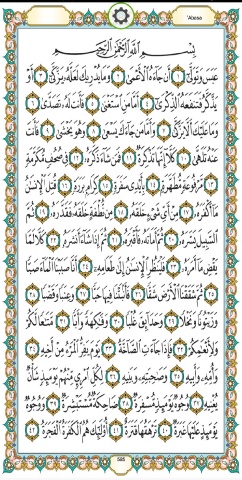 'Abasa
بِسْمِ اللَّهِ الرَّحْمَٰنِ الرَّحِيمِ
عَبَسَ وَتَوَلَّىٰ ١ أَن جَاءَهُ الْأَعْمَىٰ ٢ وَمَا يُدْرِيكَ لَعَلَّهُ يَزَّكَّىٰ ٣ أَوْ
يَذَّكَّرُ فَتَنفَعَهُ الذِّكْرَىٰ ٤ أَمَّا مَنِ اسْتَغْنَىٰ ٥ فَأَنتَ لَهُ تَصَدَّىٰ ٦
وَمَا عَلَيْكَ أَلَّا يَزَّكَّىٰ ٧ وَأَمَّا مَن جَاءَكَ يَسْعَىٰ ٨ وَهُوَ يَخْشَىٰ ٩ فَأَنتَ
عَنْهُ تَلَهَّىٰ ١٠ كَلَّا إِنَّهَا تَذْكِرَةٌ ١١ فَمَن شَاءَ ذَكَرَهُ ١٢ فِي صُحُفٍ مُّكَرَّمَةٍ
١٣ مَّرْفُوعَةٍ مُّطَهَّرَةٍ ١٤ بِأَيْدِي سَفَرَةٍ ١٥ كِرَامٍ بَرَرَةٍ ١٦ قُتِلَ الْإِنسَٰنُ
مَا أَكْفَرَهُ ١٧ مِنْ أَيِّ شَيْءٍ خَلَقَهُ ١٨ مِن نُّطْفَةٍ خَلَقَهُ فَقَدَّرَهُ ١٩ ثُمَّ
السَّبِيلَ يَسَّرَهُ ٢٠ ثُمَّ أَمَاتَهُ فَأَقْبَرَهُ ٢١ ثُمَّ إِذَا شَاءَ أَنشَرَهُ ٢٢ كَلَّا لَمَّا
يَقْضِ مَا أَمَرَهُ ٢٣ فَلْيَنظُرِ الْإِنسَٰنُ إِلَىٰ طَعَامِهِ ٢٤ أَنَّا صَبَبْنَا الْمَاءَ صَبًّا
٢٥ ثُمَّ شَقَقْنَا الْأَرْضَ شَقًّا ٢٦ فَأَنبَتْنَا فِيهَا حَبًّا ٢٧ وَعِنَبًا وَقَضْبًا ٢٨
وَزَيْتُونًا وَنَخْلًا ٢٩ وَحَدَائِقَ غُلْبًا ٣٠ وَفَٰكِهَةً وَأَبًّا ٣١ مَّتَٰعًا لَّكُمْ
وَلِأَنْعَٰمِكُمْ ٣٢ فَإِذَا جَاءَتِ الصَّاخَّةُ ٣٣ يَوْمَ يَفِرُّ الْمَرْءُ مِنْ أَخِيهِ ٣٤
وَأُمِّهِ وَأَبِيهِ ٣٥ وَصَٰحِبَتِهِ وَبَنِيهِ ٣٦ لِكُلِّ امْرِئٍ مِّنْهُمْ يَوْمَئِذٍ شَأْنٌ
يُغْنِيهِ ٣٧ وُجُوهٌ يَوْمَئِذٍ مُّسْفِرَةٌ ٣٨ ضَاحِكَةٌ مُّسْتَبْشِرَةٌ ٣٩ وَوُجُوهٌ
يَوْمَئِذٍ عَلَيْهَا غَبَرَةٌ ٤٠ تَرْهَقُهَا قَتَرَةٌ ٤١ أُولَٰئِكَ هُمُ الْكَفَرَةُ الْفَجَرَةُ ٤٢
585